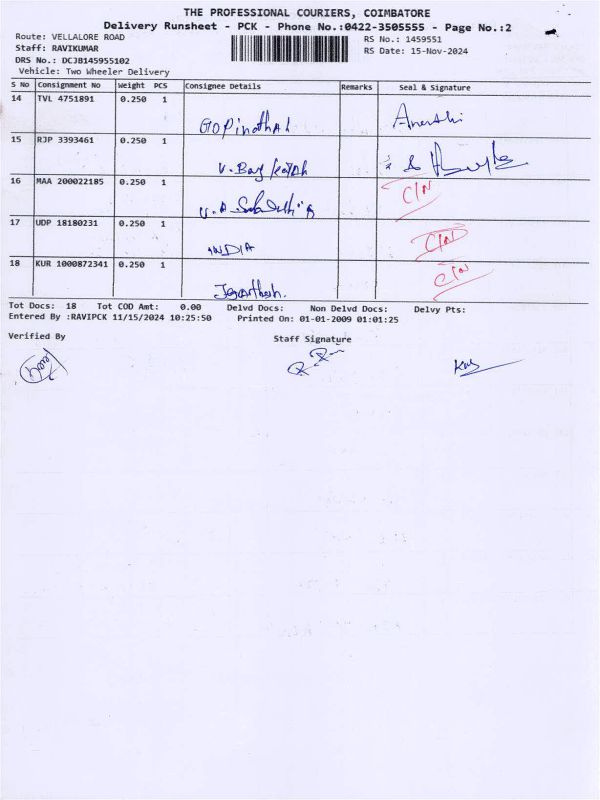 THE PROFESSIONAL COURIERS, COIMBATORE
Delivery Runsheet - PCK - Phone No.:0422-3505555 - Page No.:2
Route: VELLALORE ROAD RS No.: 1459551
Staff: RAVIKUMAR RS Date: 15-Nov-2024
DRS No.: DCJB145955102
Vehicle: Two Wheeler Delivery
S No Consignment No Weight PCS Consignee Details Remarks Seal & Signature
14 TVL 4751891 0.250 1
GOPinathaL
15 RJP 3393461 0.250 1
16 MAA 200022185 0.250 1 C/N
17 UDP 18180231 0.250 1
INDIA C/N
18 KUR 1000872341 0.250 1 C/N
Tot Docs: 18 Tot COD Amt: 0.00 Delvd Docs: Non Delvd Docs: Delvy Pts:
Entered By :RAVIPCK 11/15/2024 10:25:50 Printed On: 01-01-2009 01:01:25
Verified By Staff Signature